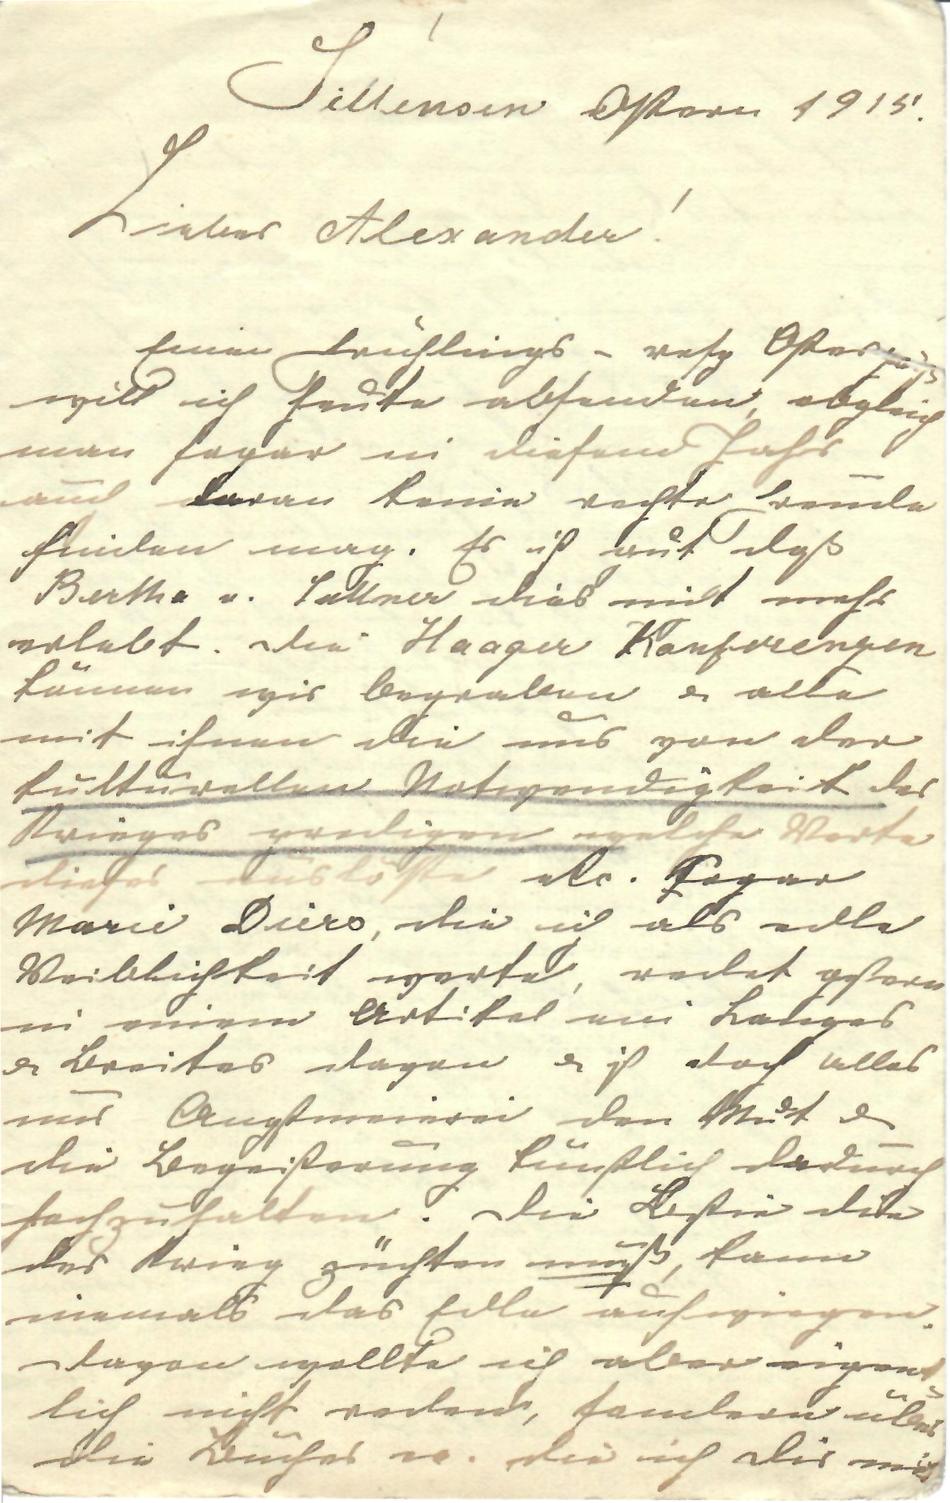 Sillensen Ostern 1915.
Lieber Alexander!
Einen Frühlings- resp Ostergruß
will ich heute absenden, obgleich
man sogar in diesem Jahr
auch daran keine rechte Freude
finden mag. Es ist gut daß
Bertha v. Suttner dies nicht mehr
erlebt. Die Haager Konferenzen
können wir begraben & alle
mit ihnen die uns von der
kulturellen Notwendigkeit des
Krieges predigen welche Werte
dieser auslöste etc. Sogar
Marie Diers, die ich als edle
Weiblichkeit werte, redet gestern
in einem Artikel ein Langes
& Breites davon & ist doch alles
nur Angstmeierei den Mut &
die Begeisterung künstlich dadurch
hochzuhalten. Die Bestie die
der Krieg züchten muß, kann
niemals das Edle aufwiegen.
Davon wollte ich aber eigent
lich nicht reden, sondern über
die Bücher die ich Dir mit